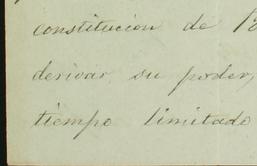 constitucion de
derivar su poder,
tiempo limitado